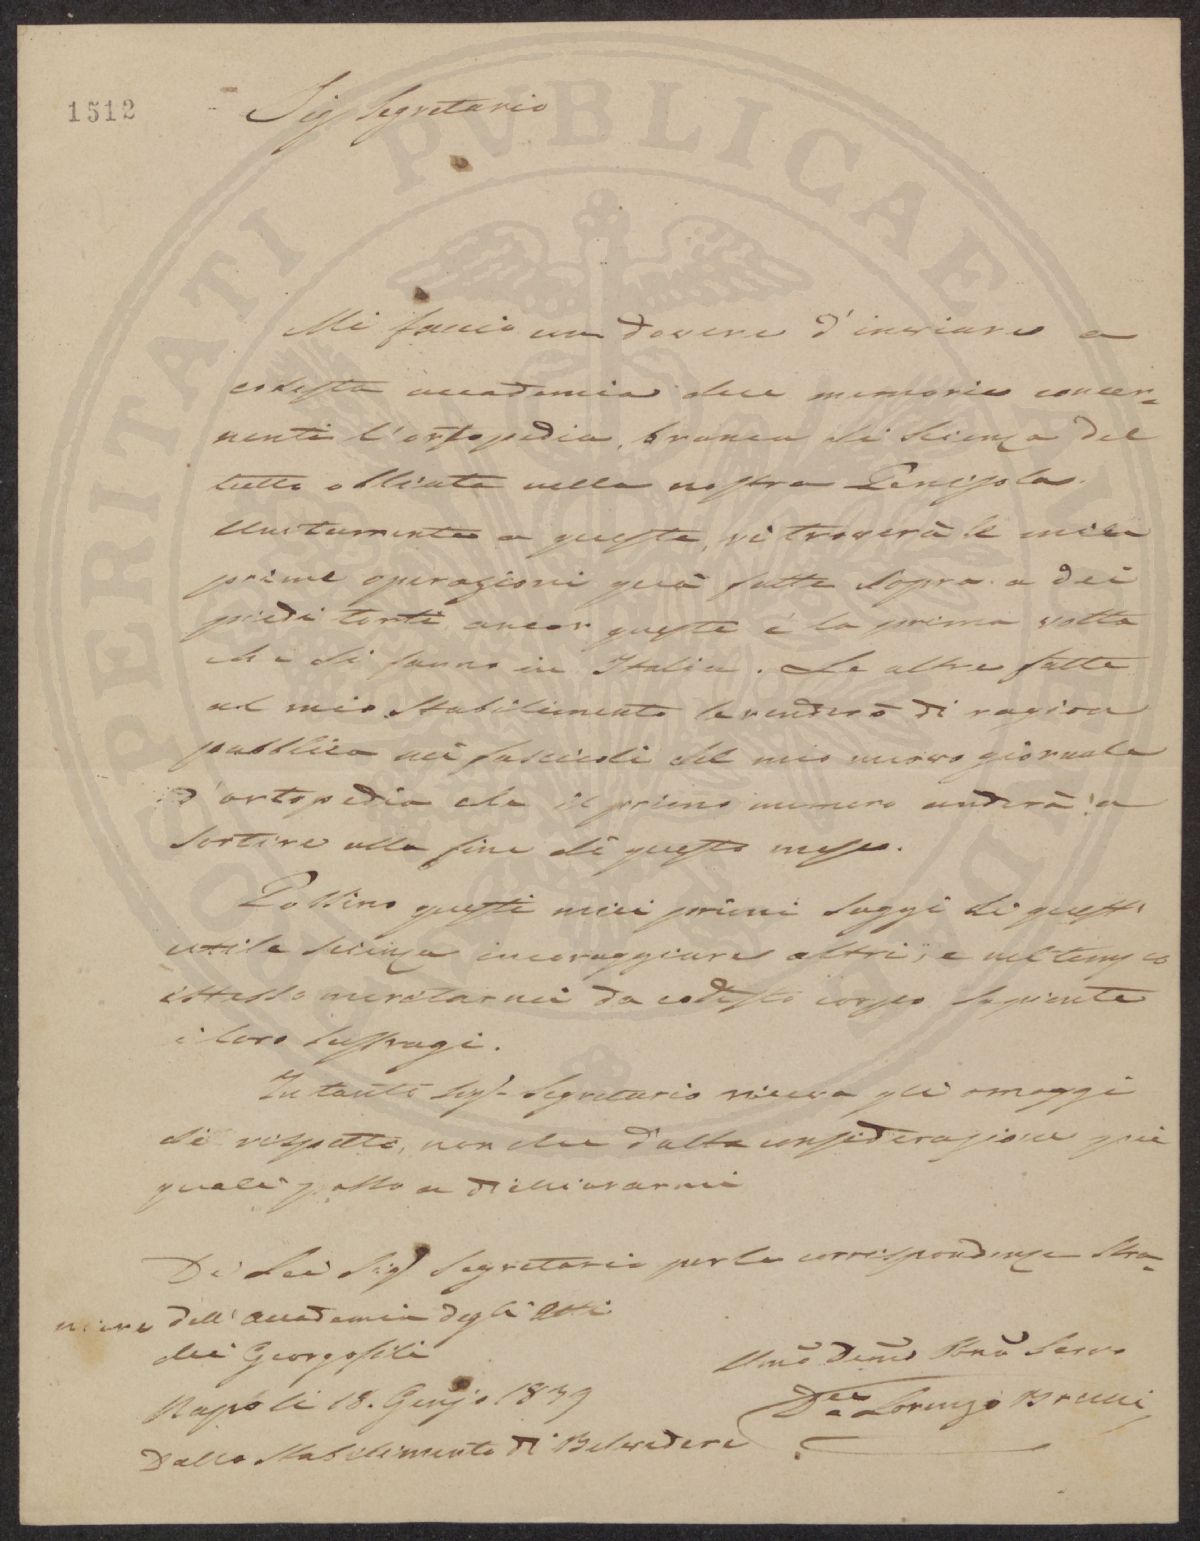 1512
Sig Segretario
Mi faccio un dovere d'inviare a
codesta accademia due memorie concer-
nenti l'ortopedia, branca di scienza del
tutto obliata nella nostra Penisola.
Unitamente a queste, vi troverà le mie
prime operazioni quà fatte sopra a dei
piedi torti, ancor queste è la prima volta
che si fanno in Italia. Le altre fatte
nel mio Stabilimento le renderò di ragion
pubblica nei fascicoli del mio nuovo giornale
d'ortopedia che il primo numero anderà a
sortire alla fine di questo mese.
Possino questi miei primi saggi di quest'
utile scienza incoraggiare altri, e nel tempo
istesso meritarmi da codesto corpo sapiente
i loro suffragi.
In tanto Sig.r Segretario riceva gli omaggi
di rispetto, non che d'alta considerazione
quali passo a dichiararmi
Di Lei Sig.r Segretario per la corrispondenza stra-
niera dell'Accademia degli Atti
dei Georgofili
Napoli 18. 1839
Dallo Stabilimento di Belvedere
Umo Devmo Servo
Lorenzo Bruni
SPERITATI PVBLICAE